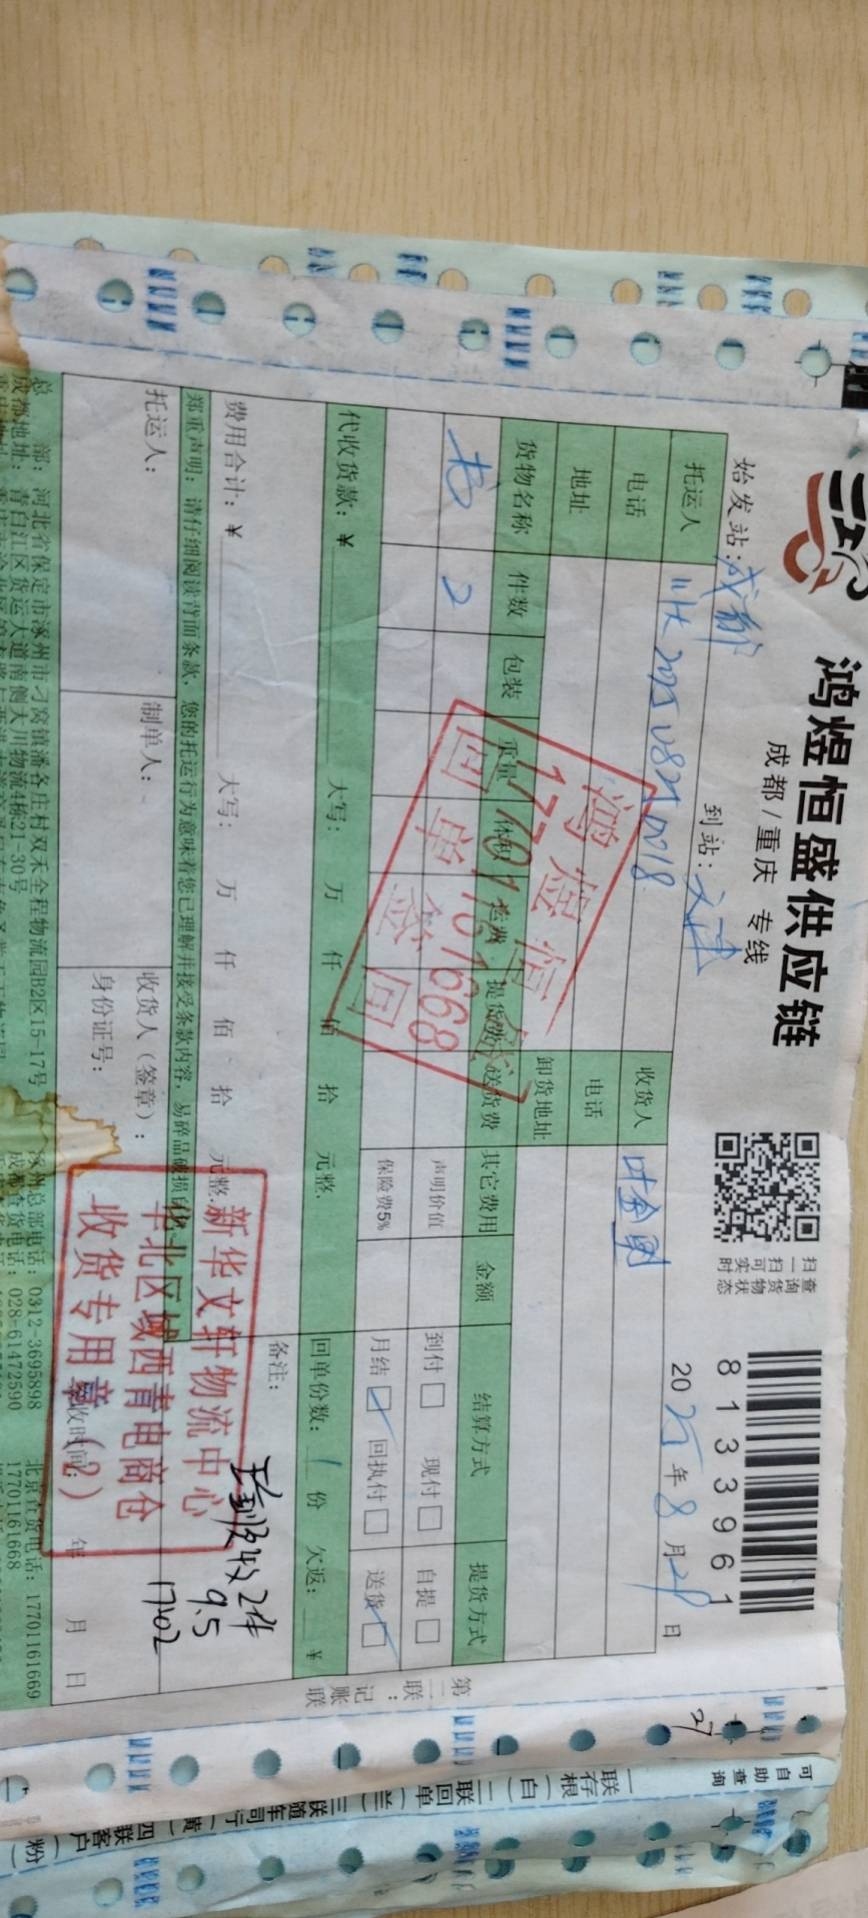 鸿煜恒盛供应链
成都/重庆 专线
扫一扫可实时
查询货物状态
81339611
始发站:成都
到站:天津
2025年8月29日
托运人
川大20250821 0018
收货人
叶金贵
电话
电话
地址
卸货地址
货物名称 件数 包装 重量 体积 运费 提货费 送货费 其它费用 金额 结算方式 提货方式
书 2
声明价值
到付□ 现付□ 自提□
保险费5%
月结☑ 回执付□ 送货☑
代收货款:¥ 大写: 万 仟 佰 拾 元整.
回单份数:1份 欠返: ¥
费用合计:¥ 大写: 万 仟 佰 拾 元整.
备注:
收2件
9.5
17:02
郑重声明:请仔细阅读背面条款,您的托运行为意味着您已理解并接受条款内容,易碎品破损
托运人:
制单人:
收货人(签章):
身份证号:
签收时间: 年 月 日
鸿煜恒盛
17701161668
回单签回
新华文轩物流中心
华北区域西青电商仓
收货专用章(2)
总部:河北省保定市涿州市刁窝镇潘各庄村双禾全程物流园B2区15-17号
涿州总部电话:0312-3695898
北京查货电话:17701161669
成都地址:青白江区货运大道南侧大川物流4栋21-30号
成都查货电话:028-61472590
17701161668
第二联:记账联
27
可自助查询
一联存根(白)二联回单(兰)三联随车司行(黄)四联客户(粉